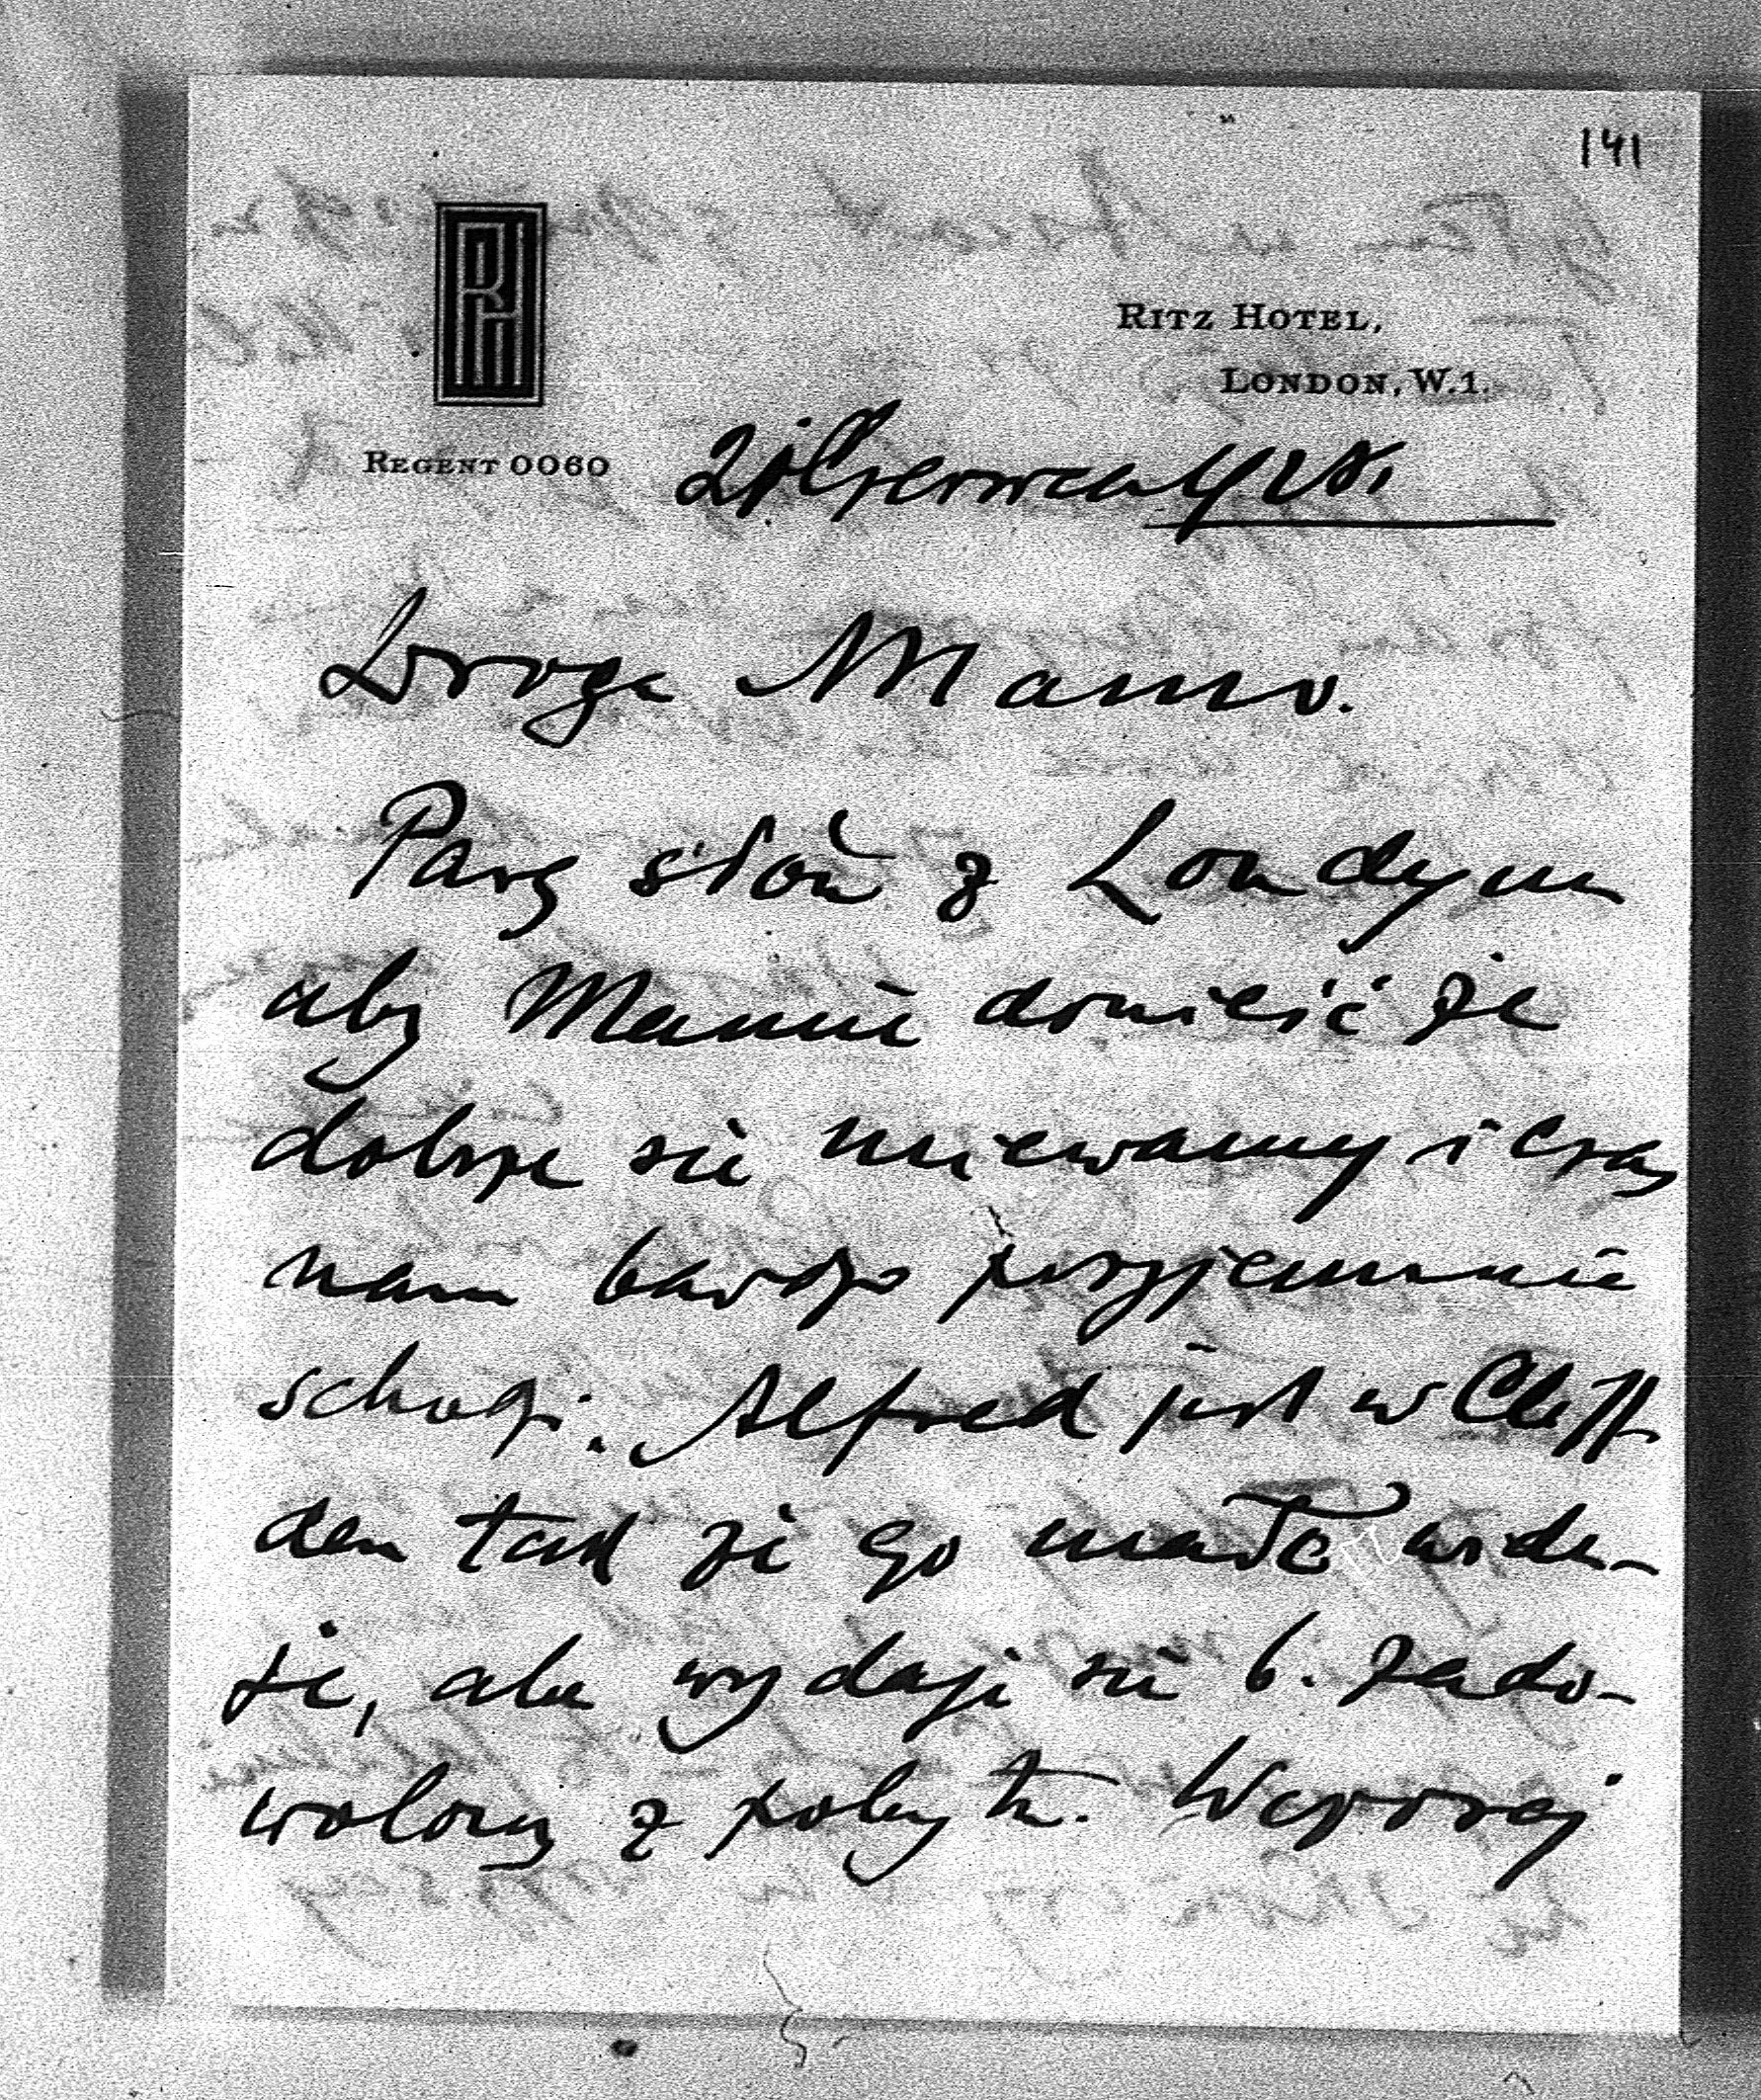 141
RH
RITZ HOTEL,
LONDON, W.1.
REGENT 0060
Czerwca 1928.
Droga Mamo.
Parę słów z Londynu
aby Mamie donieść że
dobrze się miewamy i czas
nam bardzo przyjemnie
schodzi. Alfred jest w Cliff
den tak że go mało widu-
je, ale wydaje się b. zado-
wolony z pobytu. Wczoraj